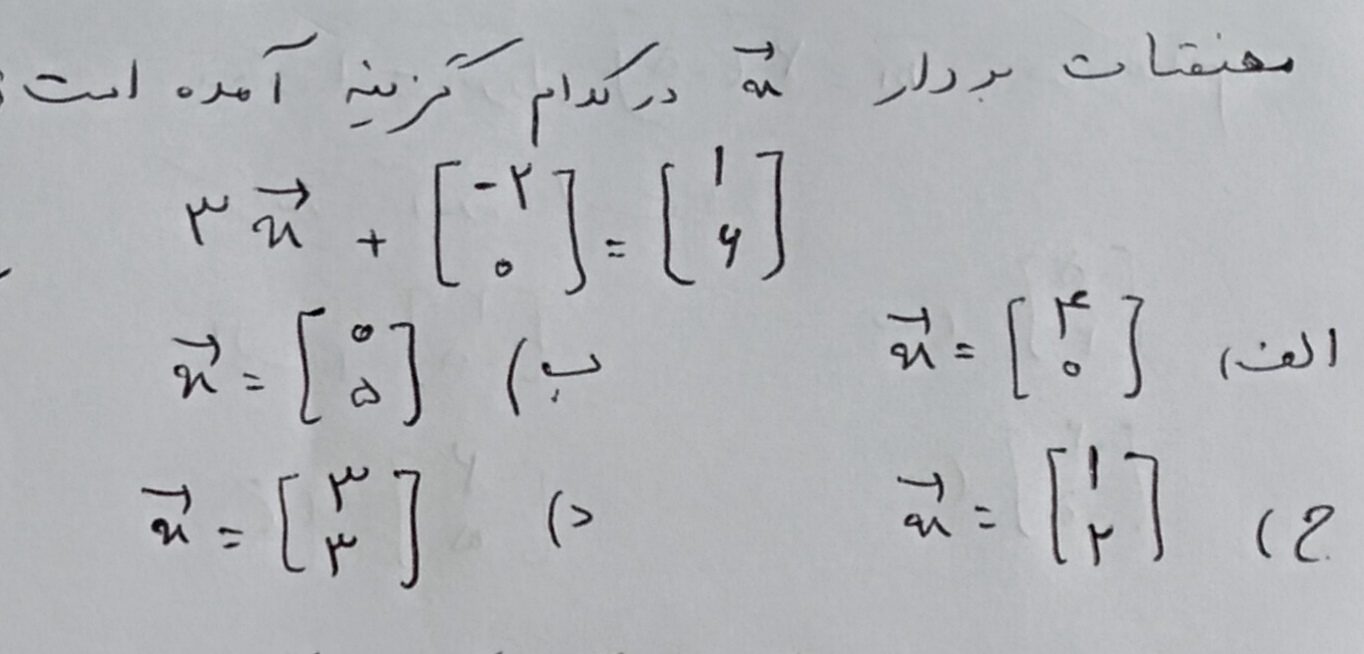 مختصات بردار x⃗ در کدام گزینه آمده است؟
۳x⃗ + [-۲ ۰] = [۱ ۶]
الف) x⃗ = [۴ ۰] ب) x⃗ = [۰ ۵]
ج) x⃗ = [۱ ۲] د) x⃗ = [۳ ۳]